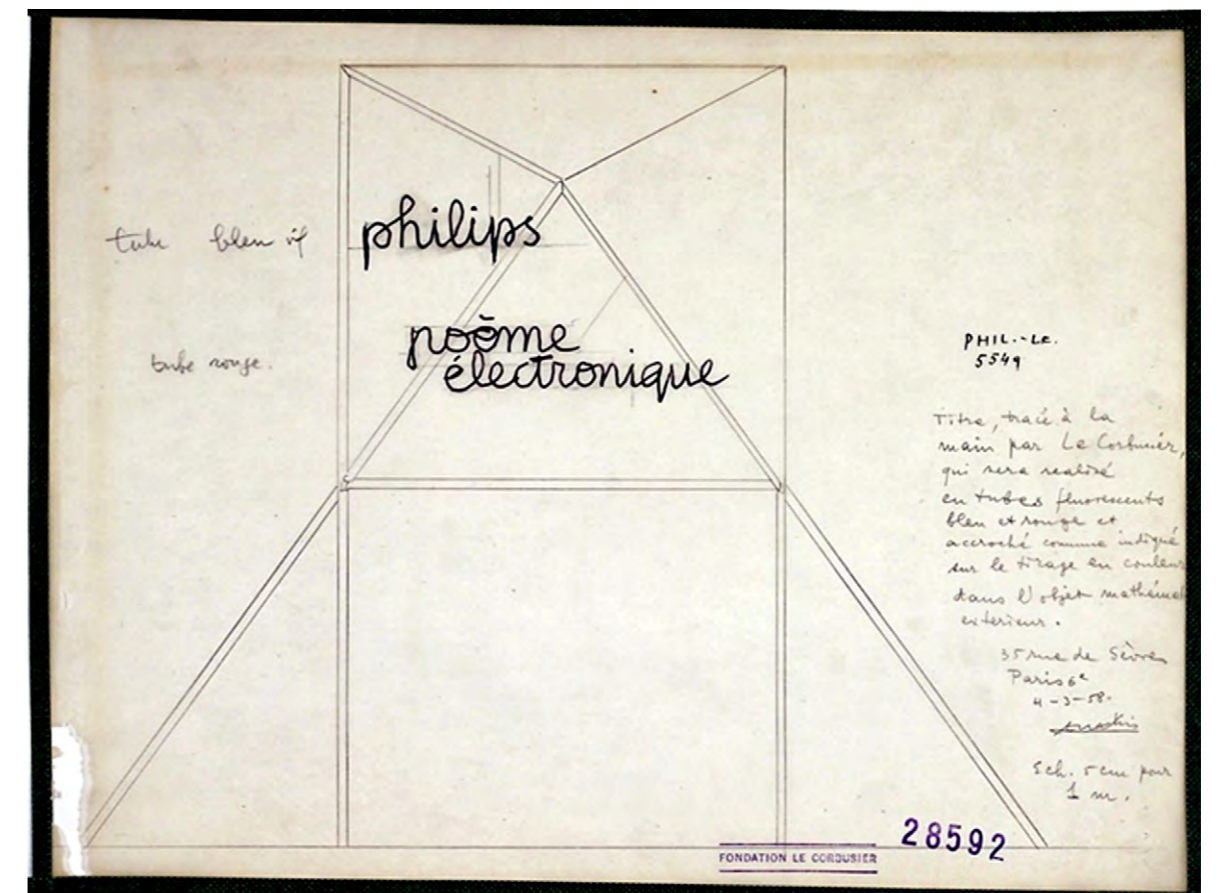 tube bleu vif
philips
poème
électronique
tube rouge.
PHIL.-LC.
5549
Titre, tracé à la
main par Le Corbusier,
qui sera realisé
en tubes fluorescents
bleu et rouge et
accroché comme indiqué
sur le tirage en couleur
dans l'objet mathémat
exterieur.
35 rue de Sèvres
Paris 6e
4-3-58.
Ech. 5 cm pour
1 m.
28592
FONDATION LE CORBUSIER